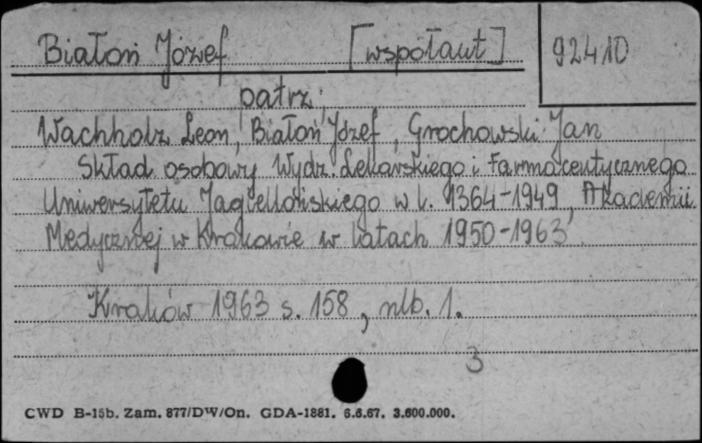 Białoń Józef [współaut] 92410
patrz:
Wachholz Leon, Białoń Józef, Grochowski Jan
Skład osobowy Wydz. Lekarskiego i Farmaceutycznego
Uniwersytetu Jagiellońskiego w l. 1364-1949, Akademii
Medycznej w Krakowie w latach 1950-1963.
Kraków 1963 s. 158, nlb. 1.
3
CWD B-15b. Zam. 877/DW/On. GDA-1881. 6.6.67. 3.600.000.